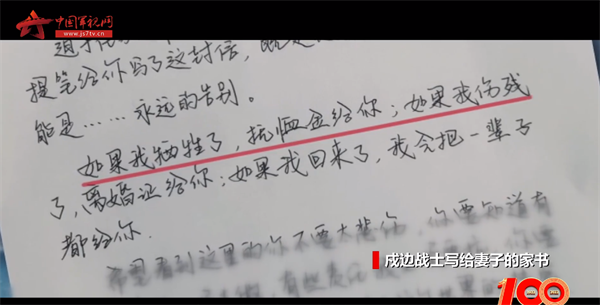 中国军视网
www.js7tv.cn
提笔给你写了这封信,
能是……永远的告别。
如果我牺牲了,抚恤金给你;如果我伤残
了,离婚证给你;如果我回来了,我会把一辈子
都给你.
希望看到这里的你不要太悲伤,你要知道有
戍边战士写给妻子的家书
100